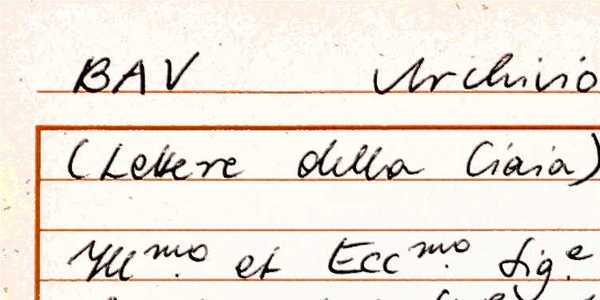 BAV Archivio
(Lettere della Ciaia)
Ill.mo et Ecc.mo Sig.e